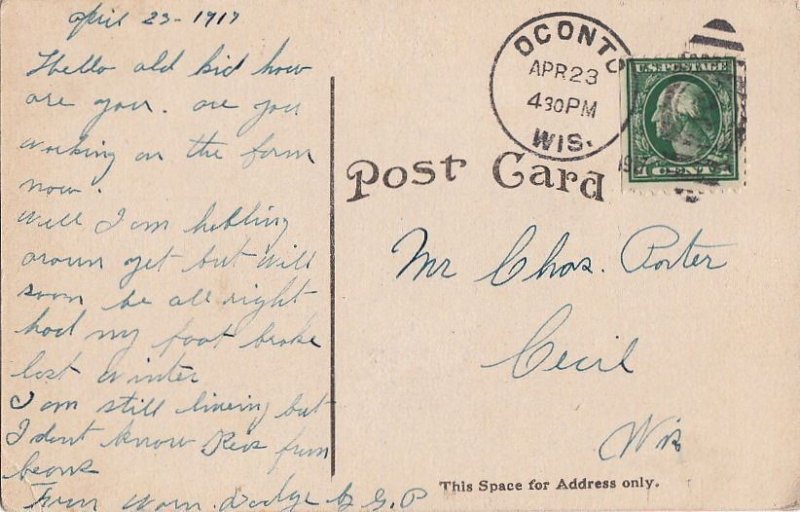 april 23 - 1917
Hello old kid how
are you. are you
working on the farm
now.
well I am hobling
aroun yet but will
soon be all right
had my foot broke
last winter
I am still liveing but
I dont know Peas from
beans
From
OCONTO
APR 23
4 30 PM
WIS.
U.S. POSTAGE
1 CENT 1
Post Card
Mr Chas. Porter
Cecil
Wis
This Space for Address only.